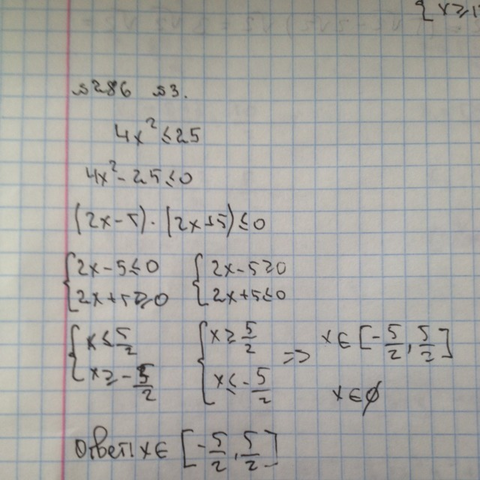 {x≥1
№286 №3.
4x² ≤ 25
4x² - 25 ≤ 0
(2x-5)·(2x+5) ≤ 0
{2x-5≤0 {2x-5≥0
{2x+5≥0 {2x+5≤0
{x≤5/2 {x≥5/2 => x∈[-5/2, 5/2]
{x≥-5/2 {x≤-5/2 x∈∅
Ответ: x∈[-5/2, 5/2]